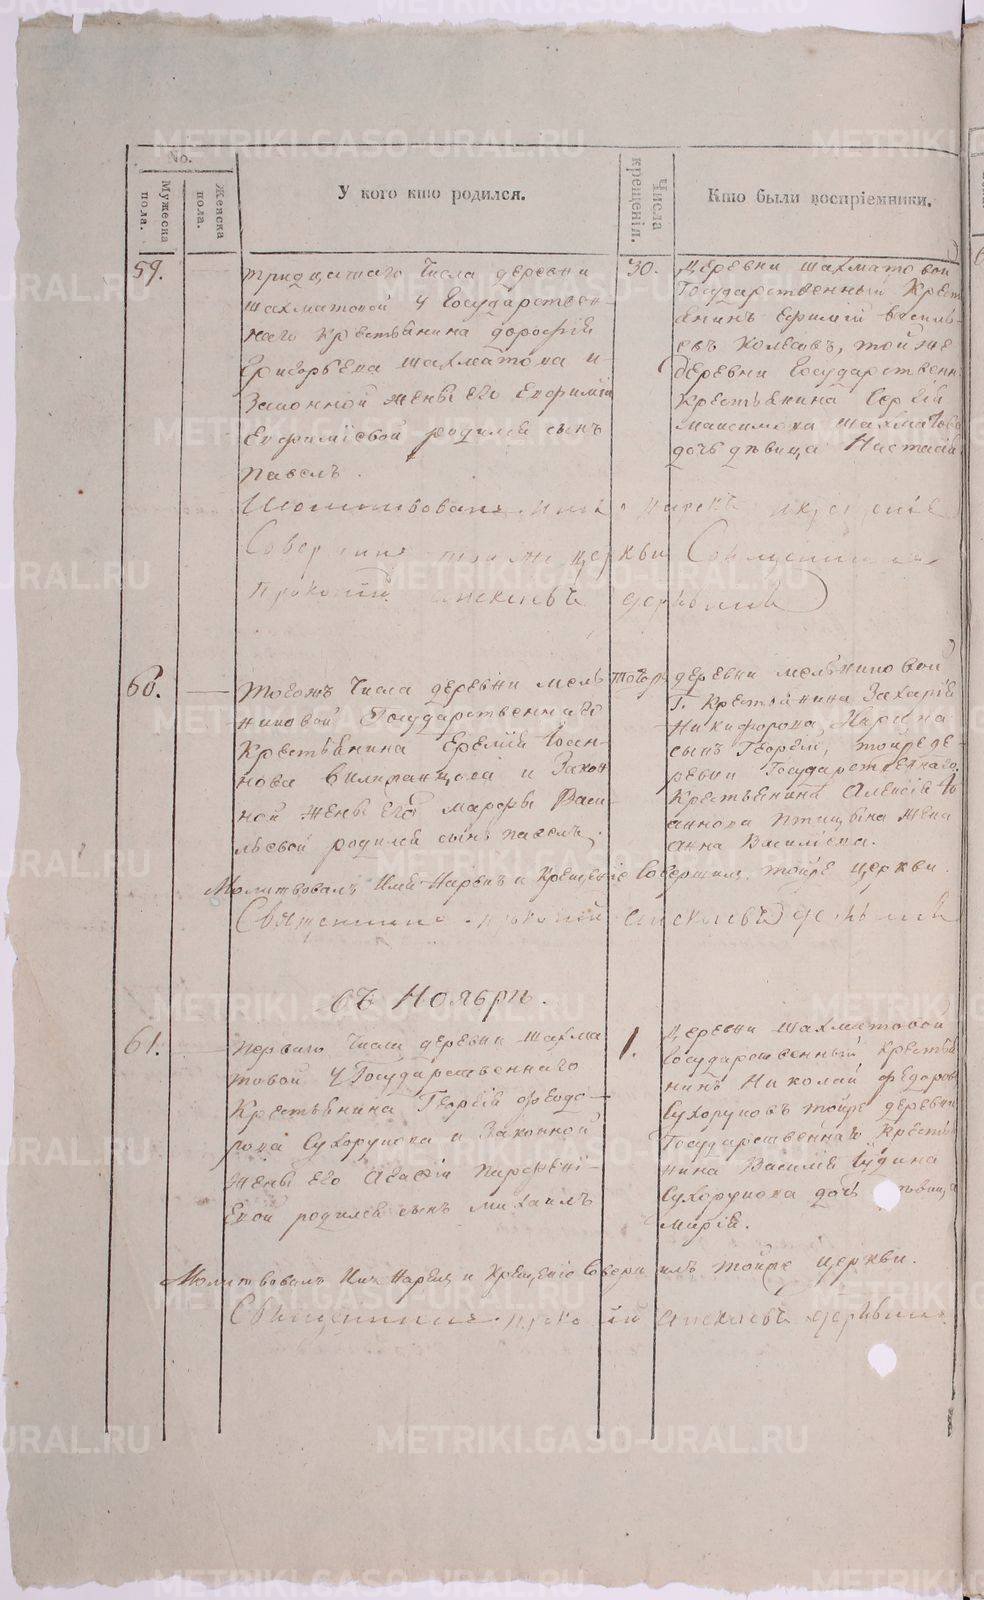 No.
Мужеска пола.
Женска пола.
У кого кто родился.
Числа крещенія.
Кто были воспріемники.
59.
тридцатаго числа деревни
шахматовой у Государствен-
наго крестьянина дорофѣя
Григорьева шахматова и
Законной жены его Евфиміи
Евфиміевой родился сынъ
павелъ.
30.
Деревни шахматовой
Государственный крест
янинъ Ефимій василь-
евъ колесовъ, той же
деревни Государственн
крестьянина Сергѣя
максимова шахматова
дочь дѣвица Настасія
Молитвовалъ имя нарекъ и крещеніе
Совершилъ той же церкви Священникъ
Прокопій Алексѣевъ
60.
тогожъ числа деревни мель
никовой Государственнаго
Крестьянина Еремѣя Іоан-
нова и Закон
ной жены его марфы Васи-
льевой родился сынъ павелъ.
тогожъ
деревни мельниковой
Г. крестьянина Захарія
Никифорова
сынъ Георгій, тойже де-
ревни Государственнаго
крестьянина Алексія Іо
аннова птицына жена
анна Василіева.
Молитвовалъ Имя Нарекъ и Крещеніе Совершилъ тойже церкви
Священникъ прокопій Алексѣевъ
Въ Ноябрѣ.
61.
перваго числа деревни шахма
товой у Государственнаго
Крестьянина Георгія Феодо-
рова Сухорукова и Законной
жены его Парфені-
евой родился сынъ михаилъ
1.
Деревни шахматовой
Государственный крестья
нинъ Николай федоровъ
Сухоруковъ тойже деревни
Государственнаго Крестья
нина Василія Іудина
Сухорукова дочь дѣвица
марія.
Молитвовалъ Имя Нарекъ и Крещеніе Совершилъ тойже церкви.
Священникъ прокопій Алексѣевъ
METRIKI.GASO-URAL.RU